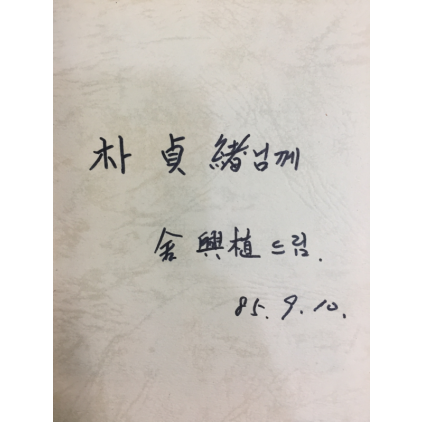 朴 貞 緖님께
金 興植 드림.
85. 9. 10.